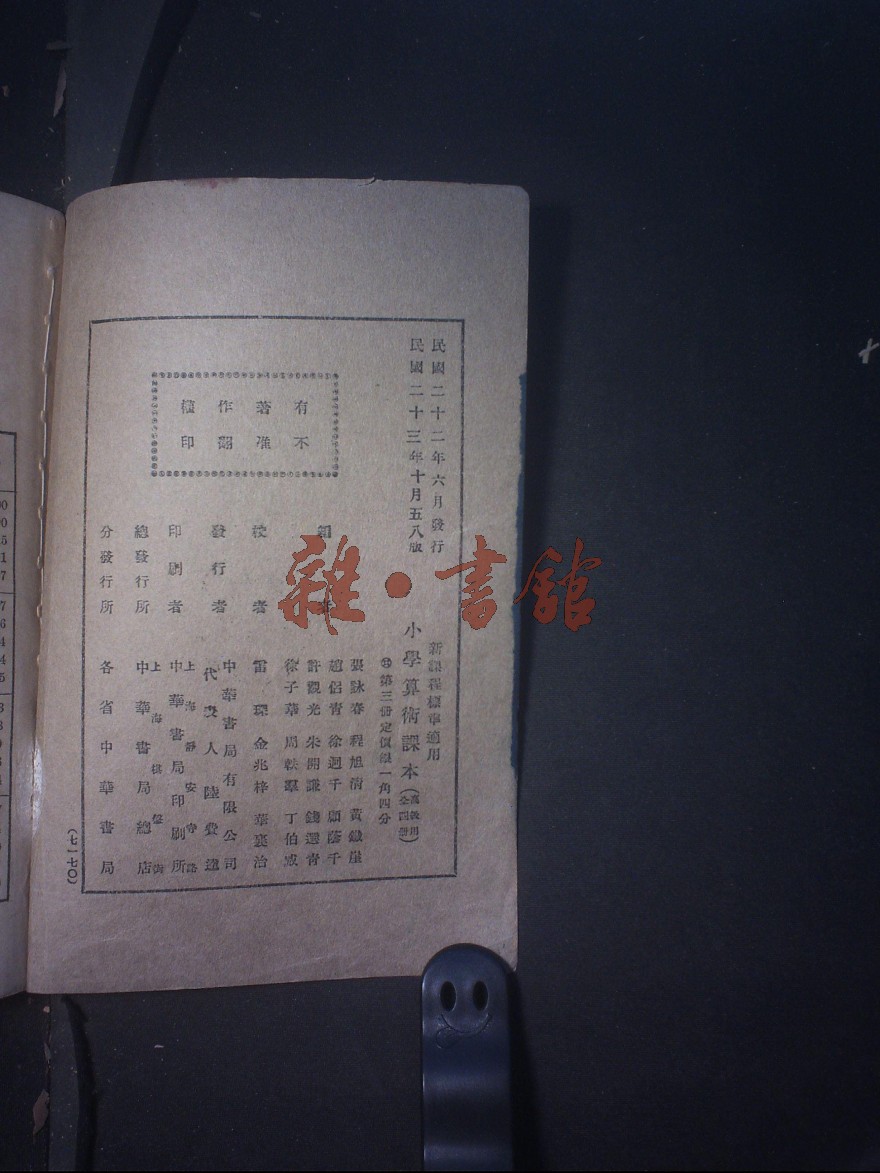 民國二十二年六月發行
民國二十三年十月五八版
有著作權
不准翻印
新課程標準適用
小學算術課本(高級用全四冊)
第三冊定價銀一角四分
編者
張詠春 程旭清 黃鐵崖
趙侶青 徐迥千 顧蔭千
許觀光 朱開謙 錢選青
徐子華 周軼羣 丁伯宬
校者
雷琛 金兆梓 華襄治
發行者
中華書局有限公司
代表人 陸費逵
印刷者
上海靜安寺路
中華書局印刷所
總發行所
上海棋盤街
中華書局總店
分發行所
各省中華書局
(七一七〇)
雜·書館